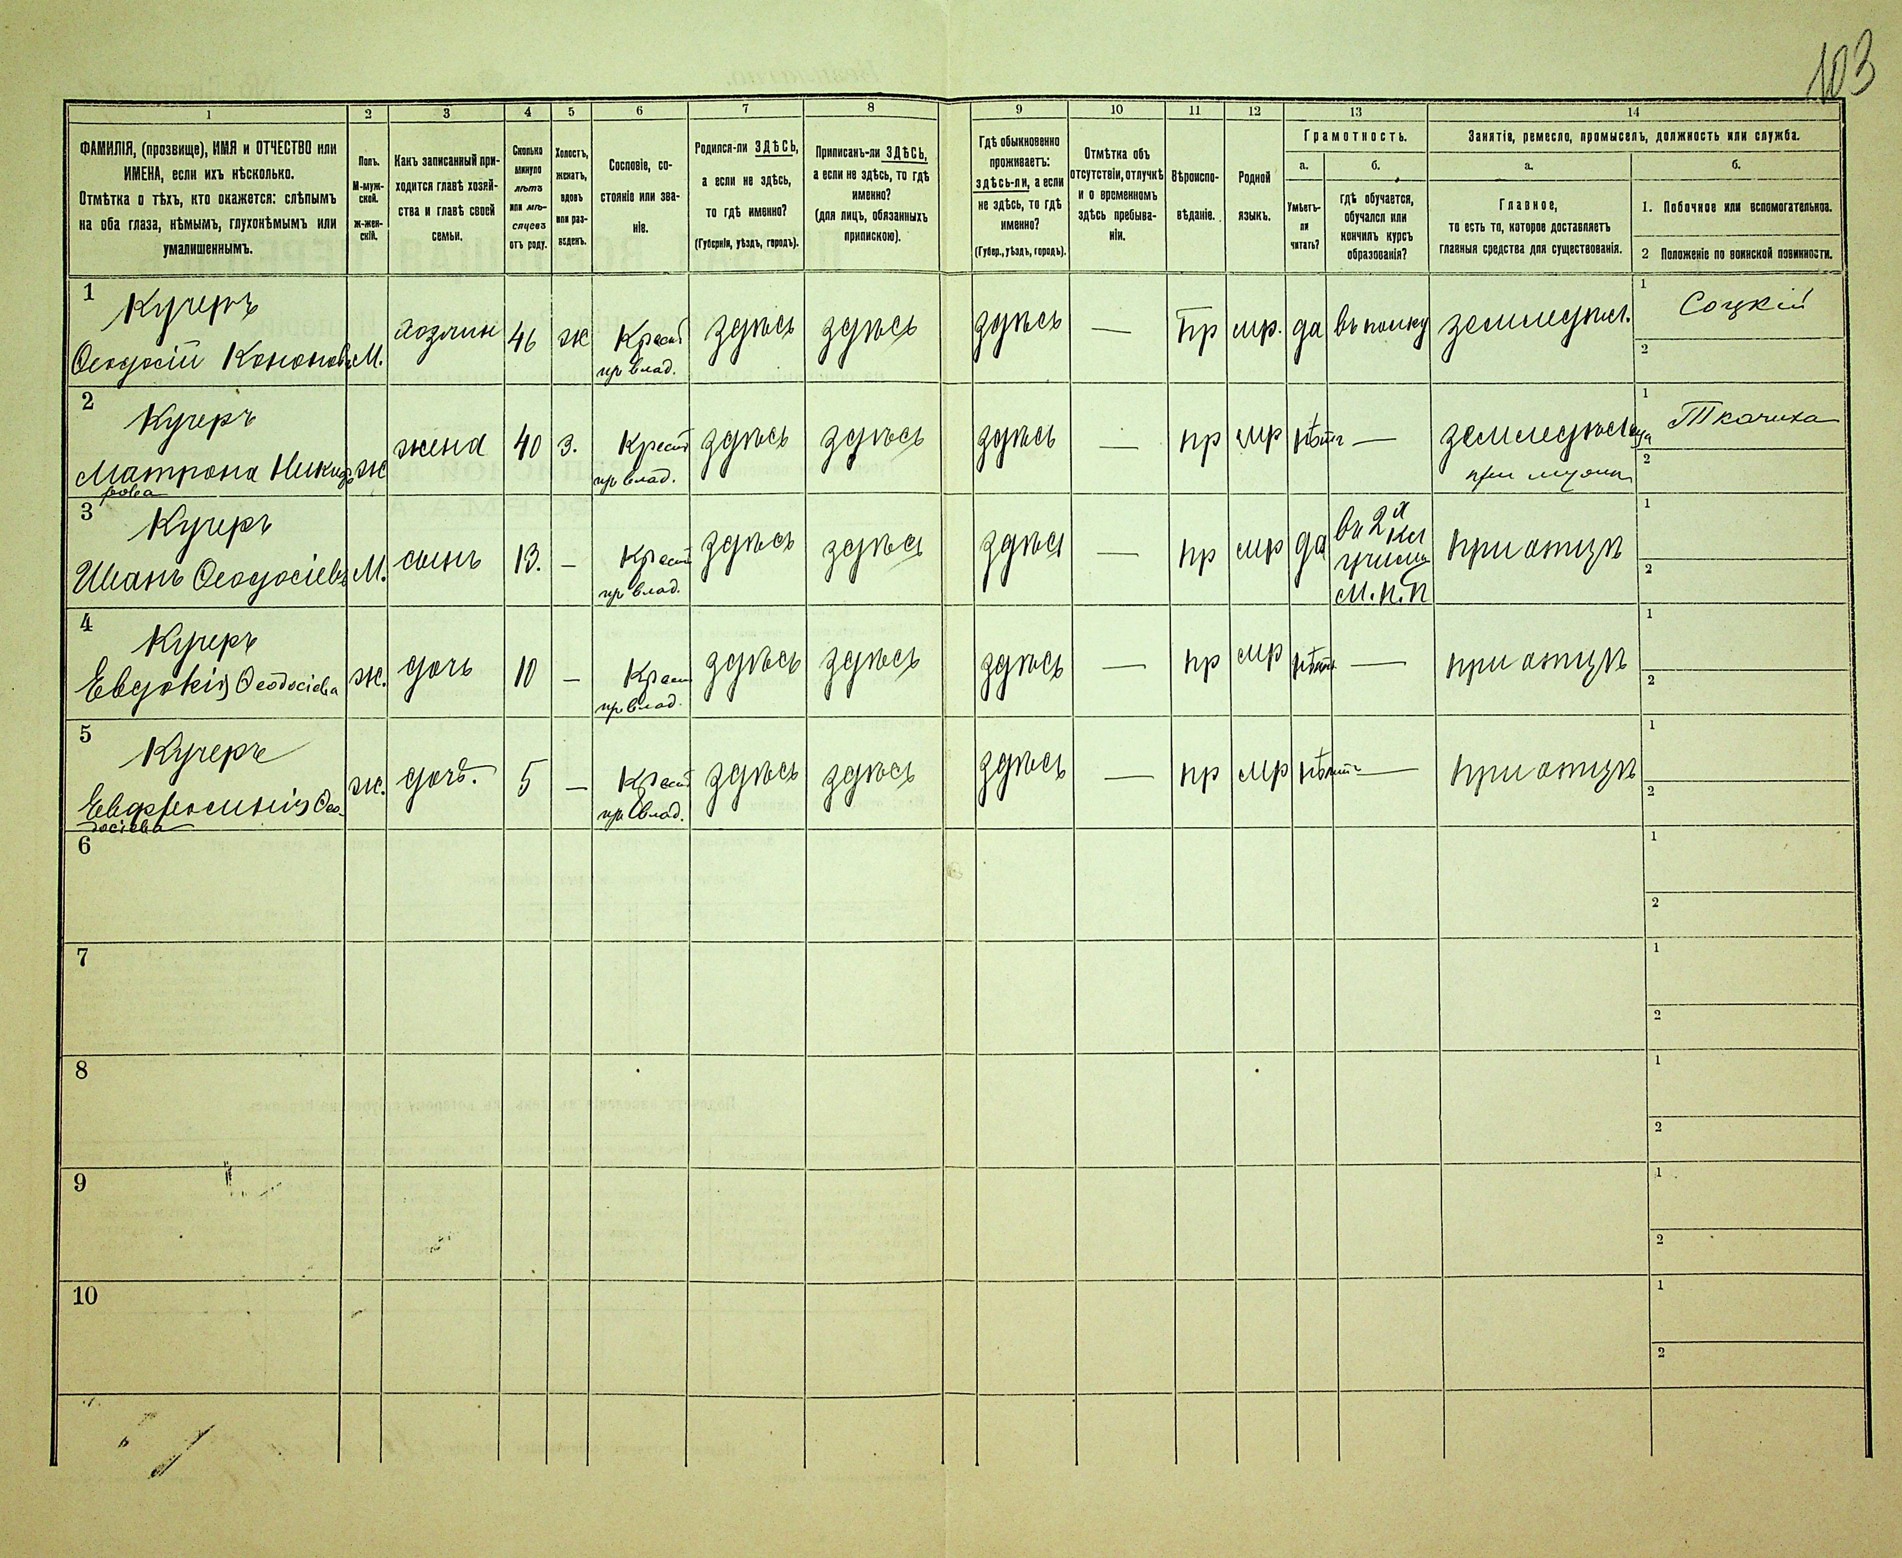 103
1 2 3 4 5 6 7 8 9 10 11 12 13 14
ФАМИЛІЯ, (прозвище), ИМЯ и ОТЧЕСТВО или
ИМЕНА, если ихъ нѣсколько.
Отмѣтка о тѣхъ, кто окажется: слѣпымъ
на оба глаза, нѣмымъ, глухонѣмымъ или
умалишеннымъ.
Полъ.
М-муж-
ской.
ж-жен-
скій.
Какъ записанный при-
ходится главѣ хозяй-
ства и главѣ своей
семьи.
Сколько
минуло
лѣтъ
или мѣ-
сяцевъ
отъ роду.
Холостъ,
женатъ,
вдовъ
или раз-
веденъ.
Сословіе, со-
стояніе или зва-
ніе.
Родился-ли ЗДѢСЬ,
а если не здѣсь,
то гдѣ именно?
(Губернія, уѣздъ, городъ).
Приписанъ-ли ЗДѢСЬ,
а если не здѣсь, то гдѣ
именно?
(для лицъ, обязанныхъ
припискою).
Гдѣ обыкновенно
проживаетъ:
здѣсь-ли, а если
не здѣсь, то гдѣ
именно?
(Губер., уѣздъ, городъ).
Отмѣтка объ
отсутствіи, отлучкѣ
и о временномъ
здѣсь пребыва-
ніи.
Вѣроиспо-
вѣданіе.
Родной
языкъ.
Грамотность.
а.
Умѣетъ-
ли
читать?
б.
гдѣ обучается,
обучался или
кончилъ курсъ
образованія?
Занятія, ремесло, промыселъ, должность или служба.
а.
Главное,
то есть то, которое доставляетъ
главныя средства для существованія.
б.
1. Побочное или вспомогательное.
2 Положеніе по воинской повинности.
1 Кучеръ
Ѳеодосій Кононовъ М. хозяинъ 46 ж Крест здѣсь здѣсь здѣсь — Пр мр. да въ полку земледѣл. 1 Соцкій
пр влад. 2
2 Кучеръ
Матрона Никифо ж жена 40 з. Крест здѣсь здѣсь здѣсь — пр мр нѣтъ — земледѣлица 1 Ткачиха
рова пр влад. при мужѣ 2
3 Кучеръ
Иванъ Ѳеодосіевъ М. сынъ 13. — Крест здѣсь здѣсь здѣсь — пр мр да въ 2й при отцѣ 1
пр влад. кл 2
М.Н.П
4 Кучеръ
Евдокія Ѳеодосіева ж. дочь 10 — Крест здѣсь здѣсь здѣсь — пр мр нѣтъ — при отцѣ 1
пр влад. 2
5 Кучеръ
Евфросинія Ѳео- ж. дочь. 5 — Крест здѣсь здѣсь здѣсь — пр мр нѣтъ — при отцѣ 1
досіева пр влад. 2
6 1
2
7 1
2
8 1
2
9 1
2
10 1
2